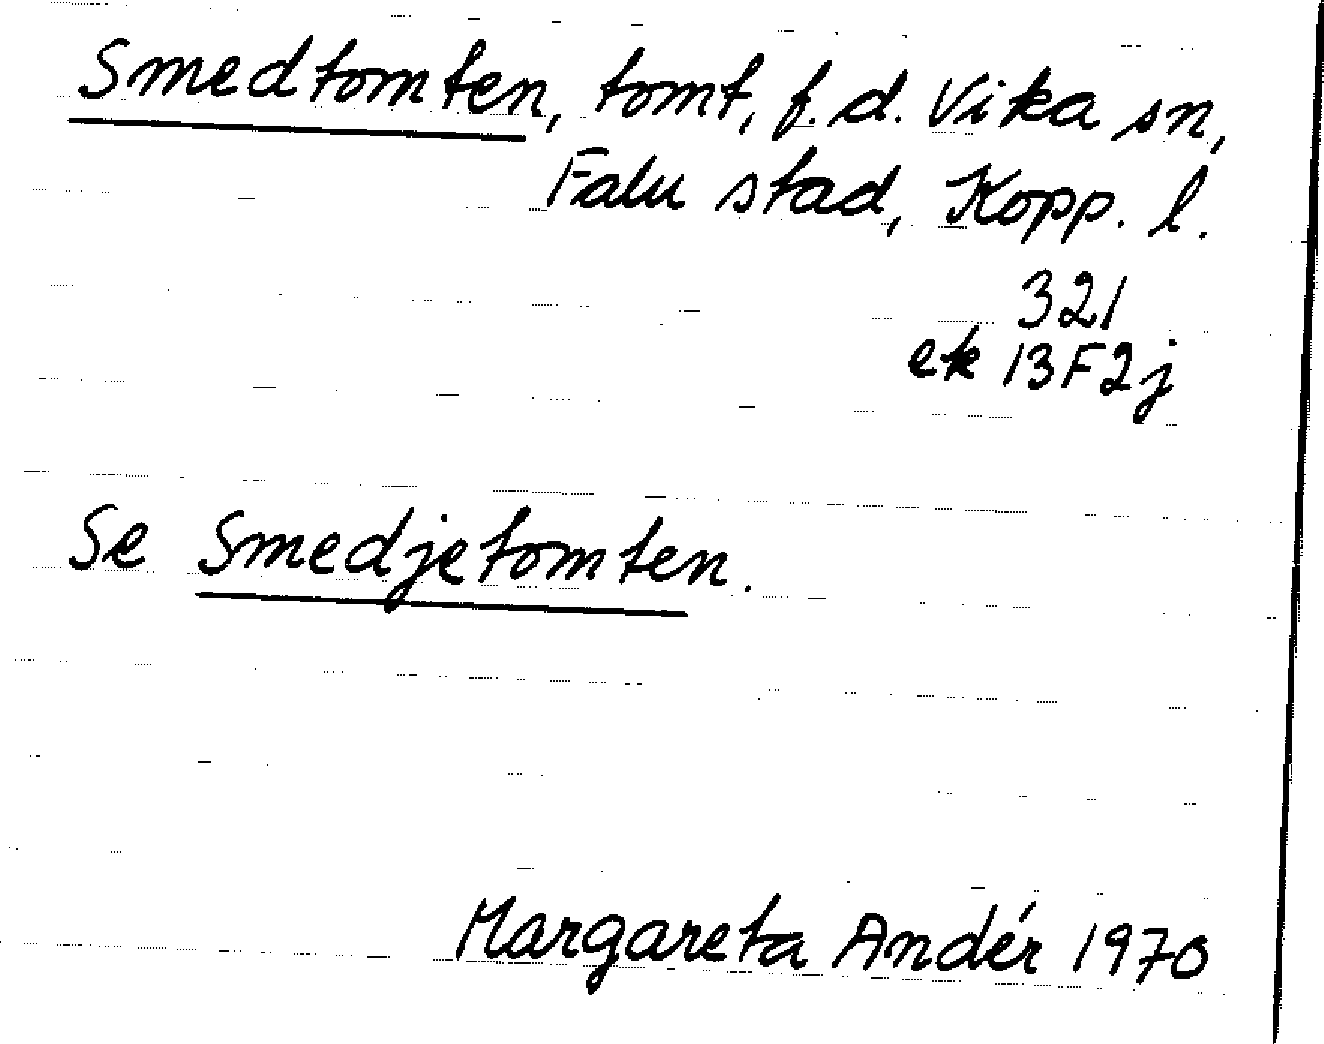 Smedtomten, tomt, f.d. Vika sn,
Falu stad, Kopp. l.
321
ek 13F2j
Se Smedjetomten.
Margareta Andér 1970